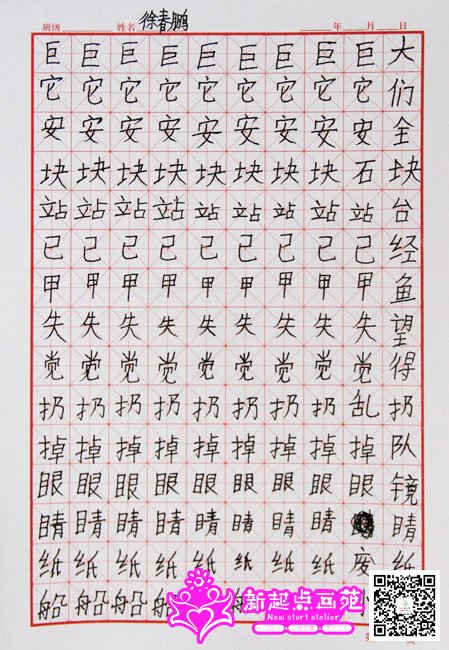 班级 姓名 徐春鹏 年 月 日
巨 巨 巨 巨 巨 巨 巨 巨 巨 大
它 它 它 它 它 它 它 它 它 们
安 安 安 安 安 安 安 安 安 全
块 块 块 块 块 块 块 块 石 块
站 站 站 站 站 站 站 站 站 台
已 已 已 已 已 已 已 已 已 经
甲 甲 甲 甲 甲 甲 甲 甲 甲 鱼
失 失 失 失 失 失 失 失 失 望
觉 觉 觉 觉 觉 觉 觉 觉 觉 得
扔 扔 扔 扔 扔 扔 扔 扔 乱 扔
掉 掉 掉 掉 掉 掉 掉 掉 掉 队
眼 眼 眼 眼 眼 眼 眼 眼 眼 镜
睛 睛 睛 睛 睛 睛 睛 睛 睛
纸 纸 纸 纸 纸 纸 纸 纸 废 纸
船 船 船 船
新起点画苑
New start atelier